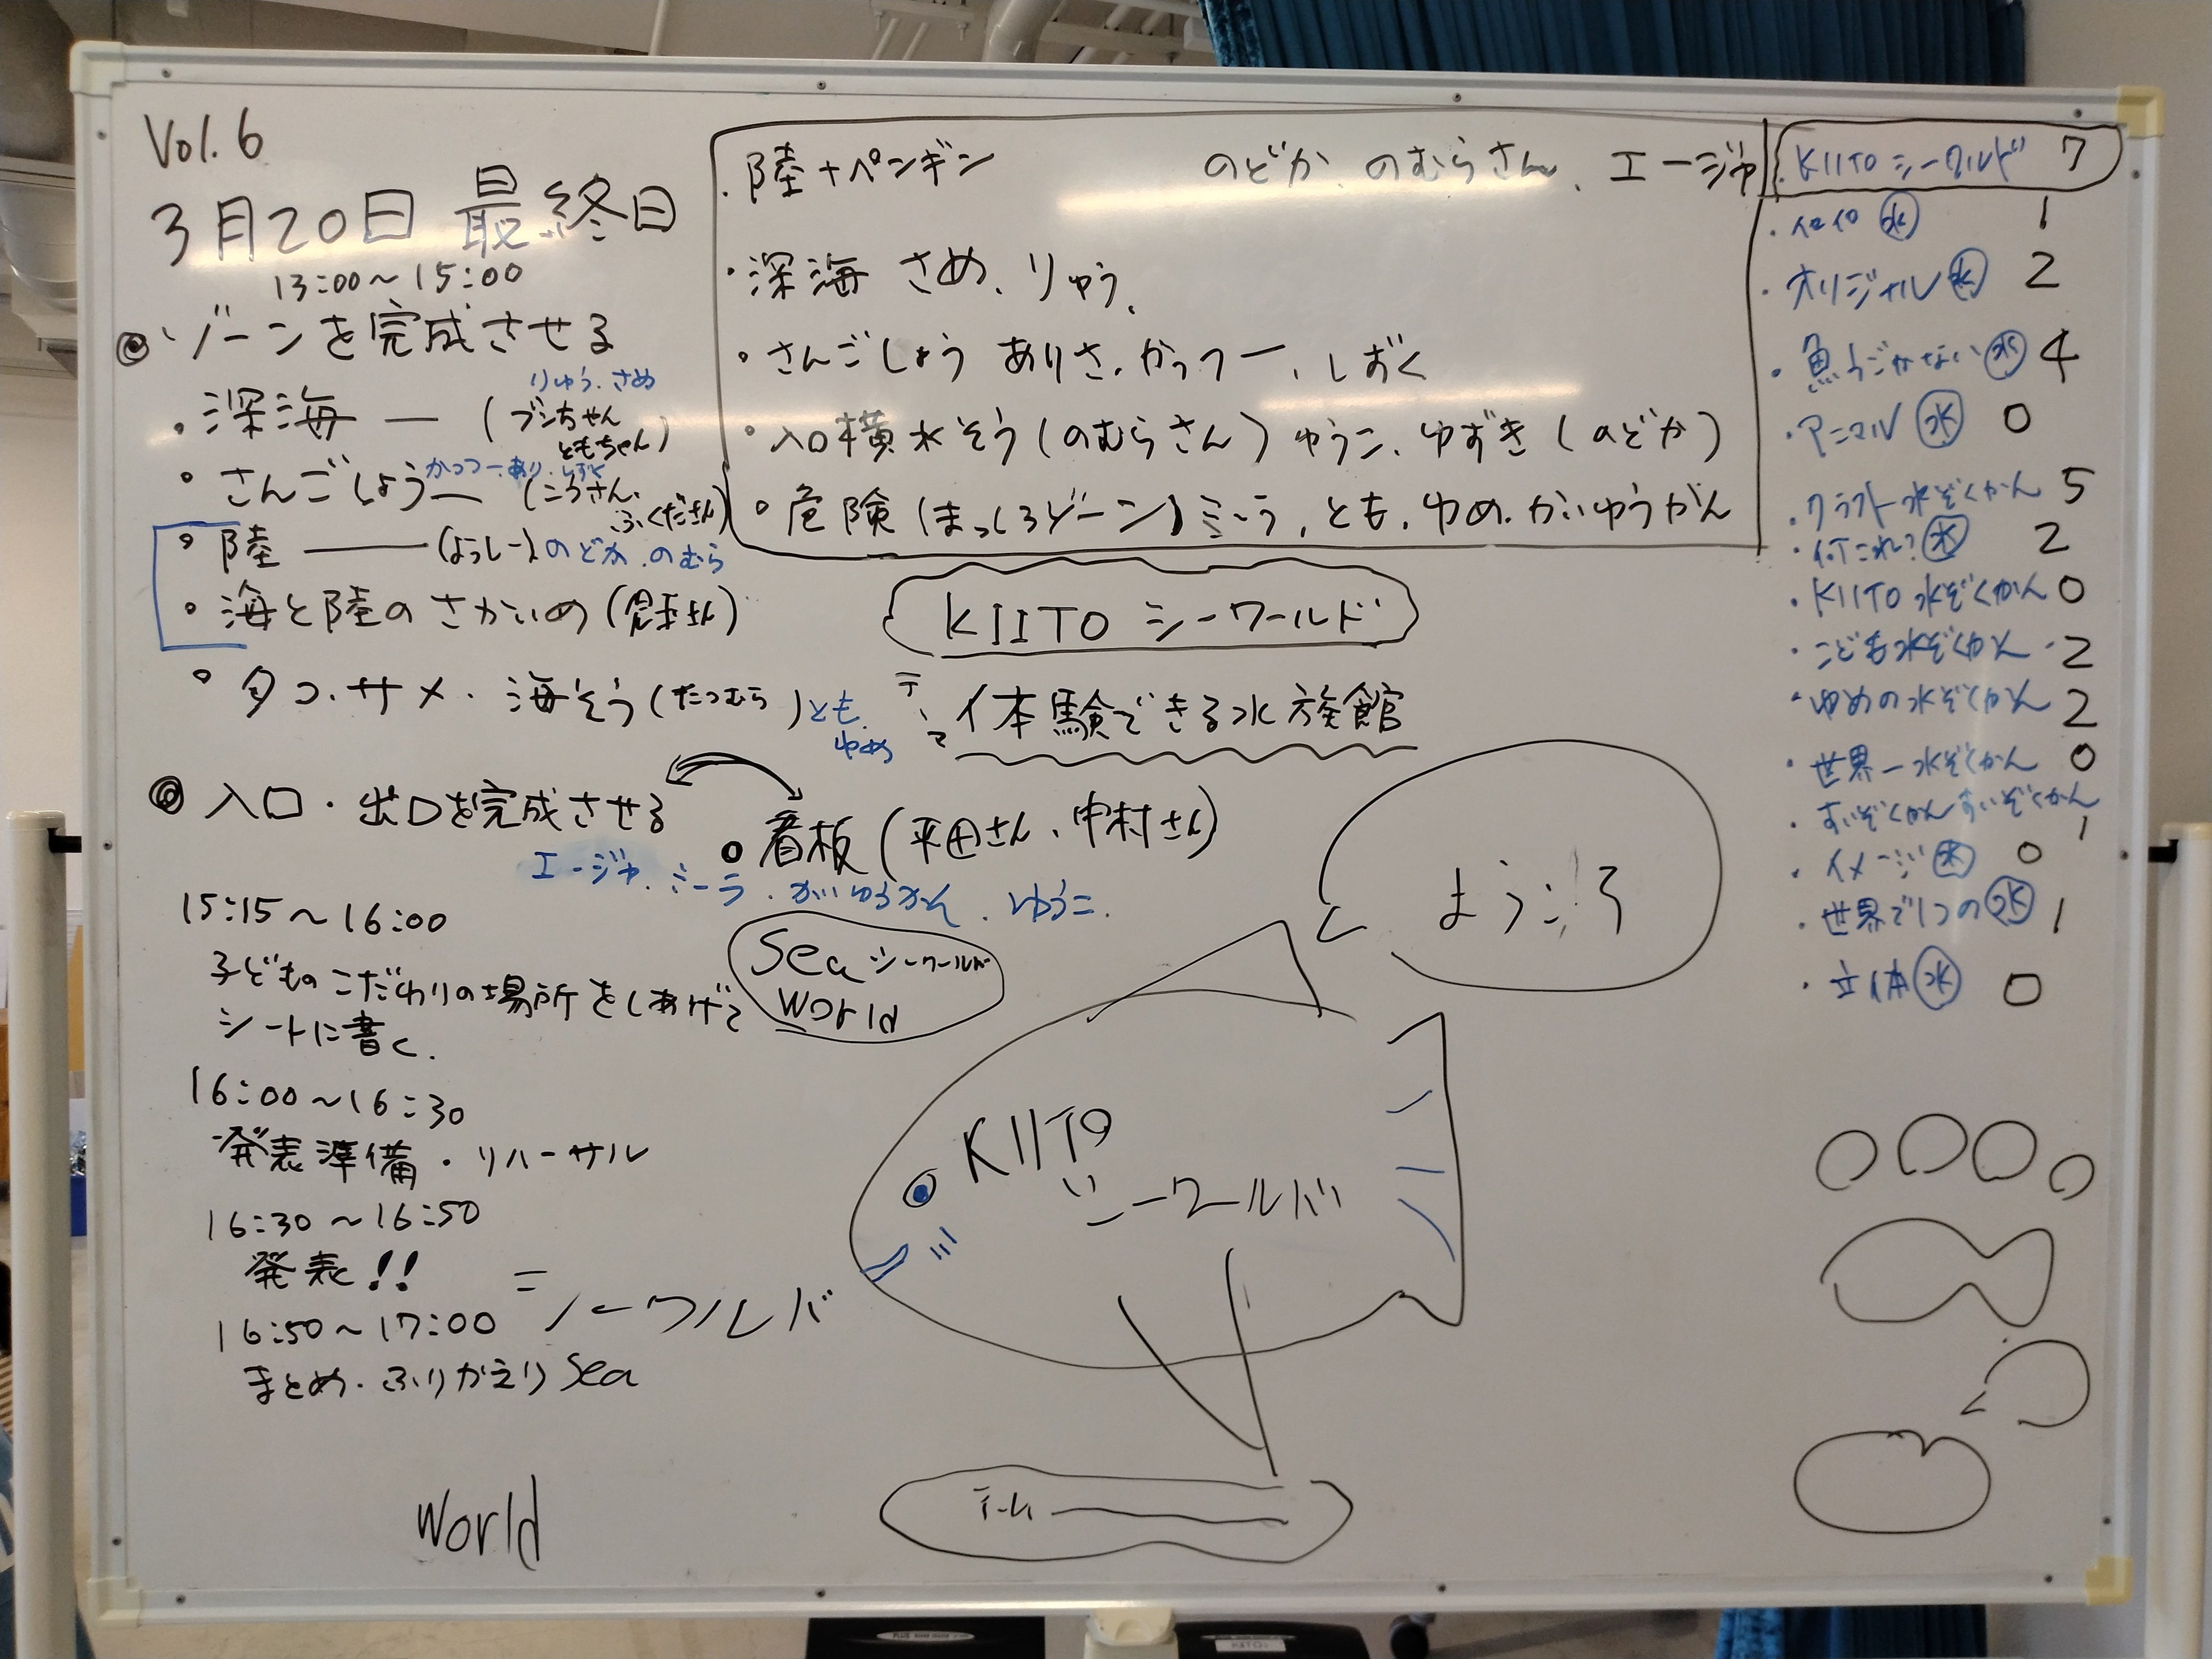 Vol.6
3月20日 最終日
13:00～15:00
◎ゾーンを完成させる
りゅう、さめ
・深海 ― (ブンちゃん
ともちゃん)
かっつー、あり、しずく
・さんごしょう ― (ころさん、
ふくださん)
・陸 ― (よっしー) のどか、のむら
・海と陸のさかいめ
・タコ・サメ・海そう(たつむら) とも、
ゆめ
◎入口・出口を完成させる
○看板(平田さん、中村さん)
エージャ、ミーラ、かいゆうかん、ゆうこ、
15:15～16:00
子どものこだわりの場所をしあげて
シートに書く.
16:00～16:30
発表準備・リハーサル
16:30～16:50
発表!!
16:50～17:00
まとめ・ふりかえり
シーワルド
Sea
World
・陸+ペンギン のどか、のむらさん、エージャ
・深海 さめ、りゅう、
・さんごしょう ありさ、かっつー、しずく
・入口横水そう(のむらさん) ゆうこ、ゆずき(のどか)
・危険(まっしろゾーン) ミーラ, とも, ゆめ、かいゆうかん
KIITO シーワールド
テーマ
体験できる水族館
Sea シーワールド
World
ようこそ
KIITO
シーワールド
チーム
・KIITO シーワルド 7
・イロイロ㊌ 1
・オリジナル㊌ 2
・魚うごかない㊌ 4
・アニマル㊌ 0
・クラフト水ぞくかん 5
・これ?㊌ 2
・KIITO 水ぞくかん 0
・こども水ぞくかん 2
・ゆめの水ぞくかん 2
・世界一水ぞくかん 0
・すいぞくかんすいぞくかん 1
・イメージ㊌ 0
・世界で1つの㊌ 1
・立体㊌ 0